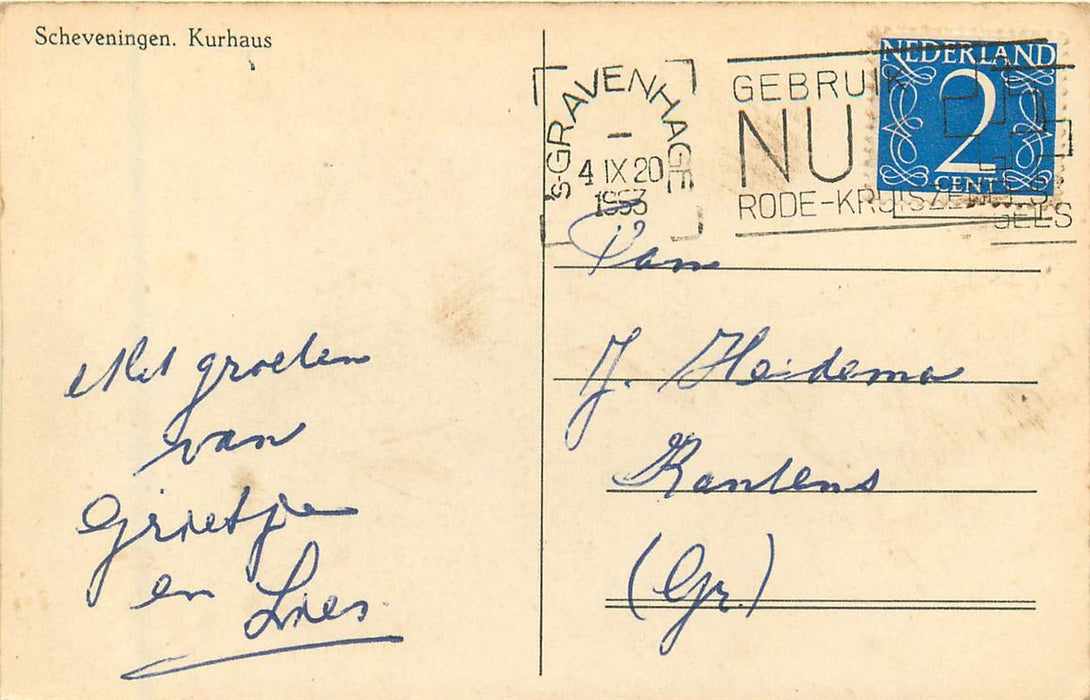 Scheveningen. Kurhaus
's-GRAVENHAGE
4 IX 20
1953
GEBRUIK
NU
RODE-KRUISZEGELS
NEDERLAND
2
CENT
Met groeten
van
Grietje
en Loes
Fam
J. Heidema
Kantens
(Gr.)